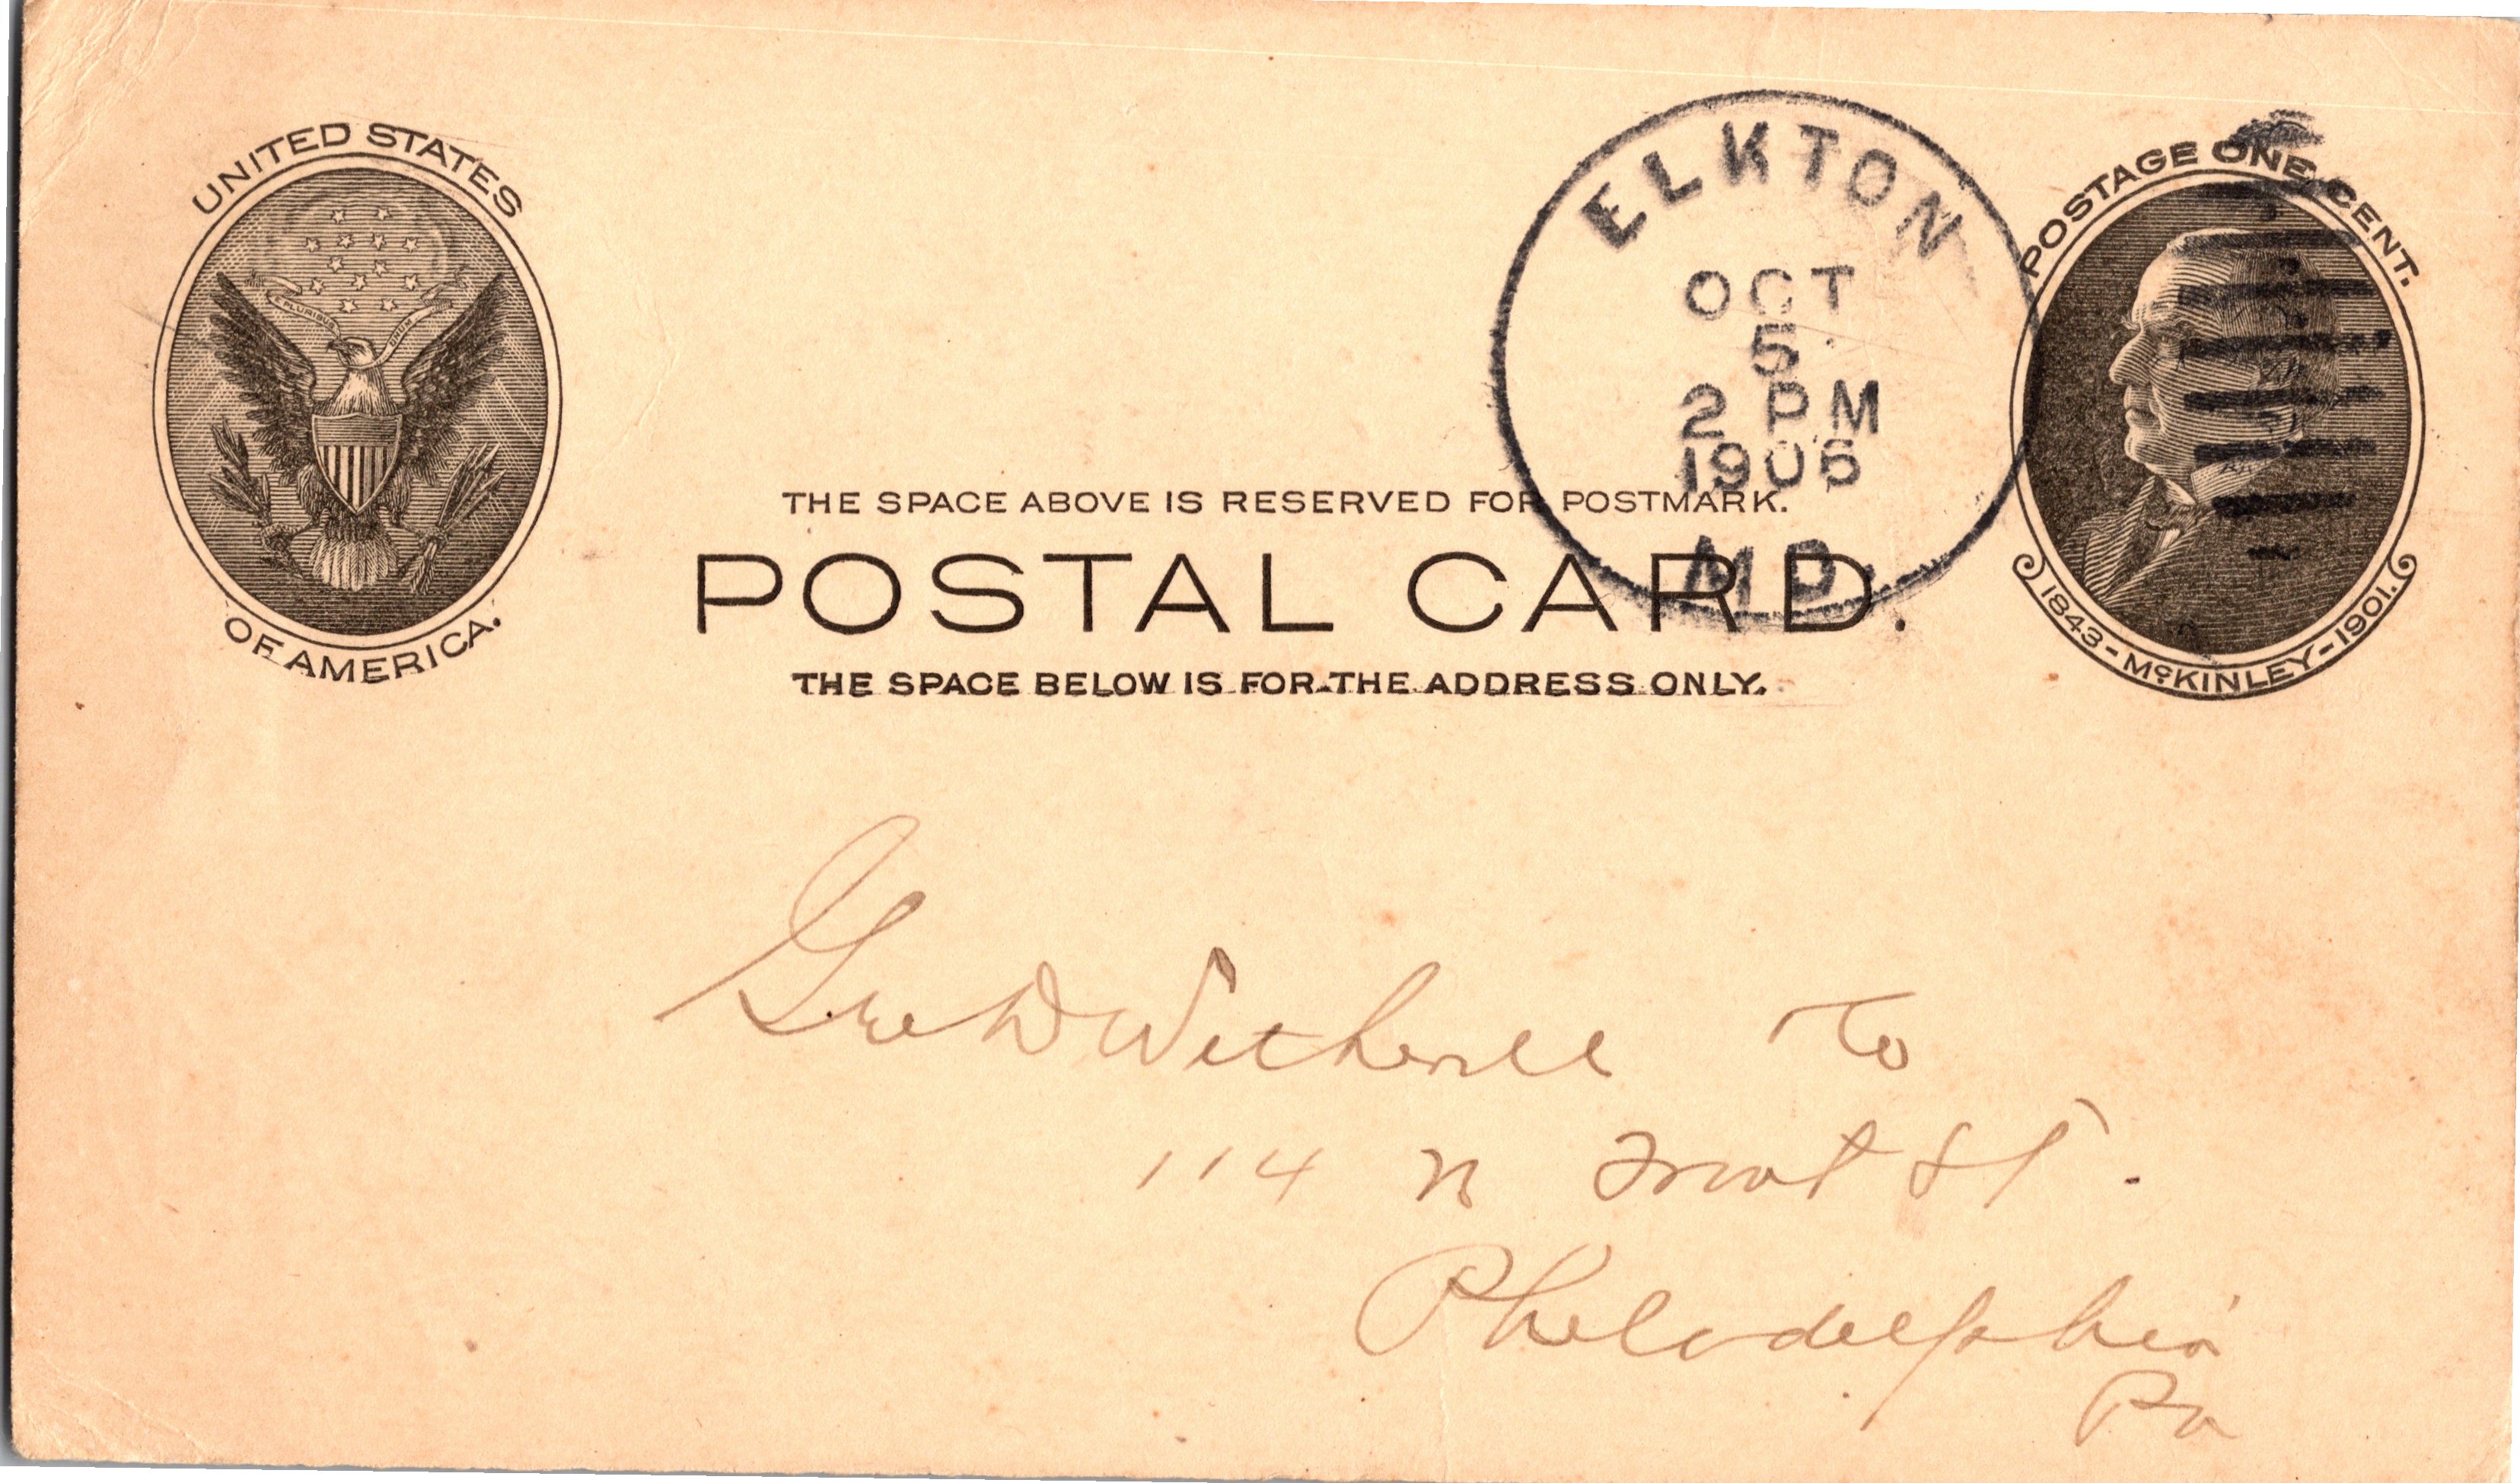 UNITED STATES
OF AMERICA.
E PLURIBUS UNUM
ELKTON
OCT
5
2 PM
1906
MD.
POSTAGE ONE CENT.
1843-McKINLEY-1901.
THE SPACE ABOVE IS RESERVED FOR POSTMARK.
POSTAL CARD.
THE SPACE BELOW IS FOR THE ADDRESS ONLY.
Geo D Wetherill Co
114 N Front St.
Philadelphia
Pa